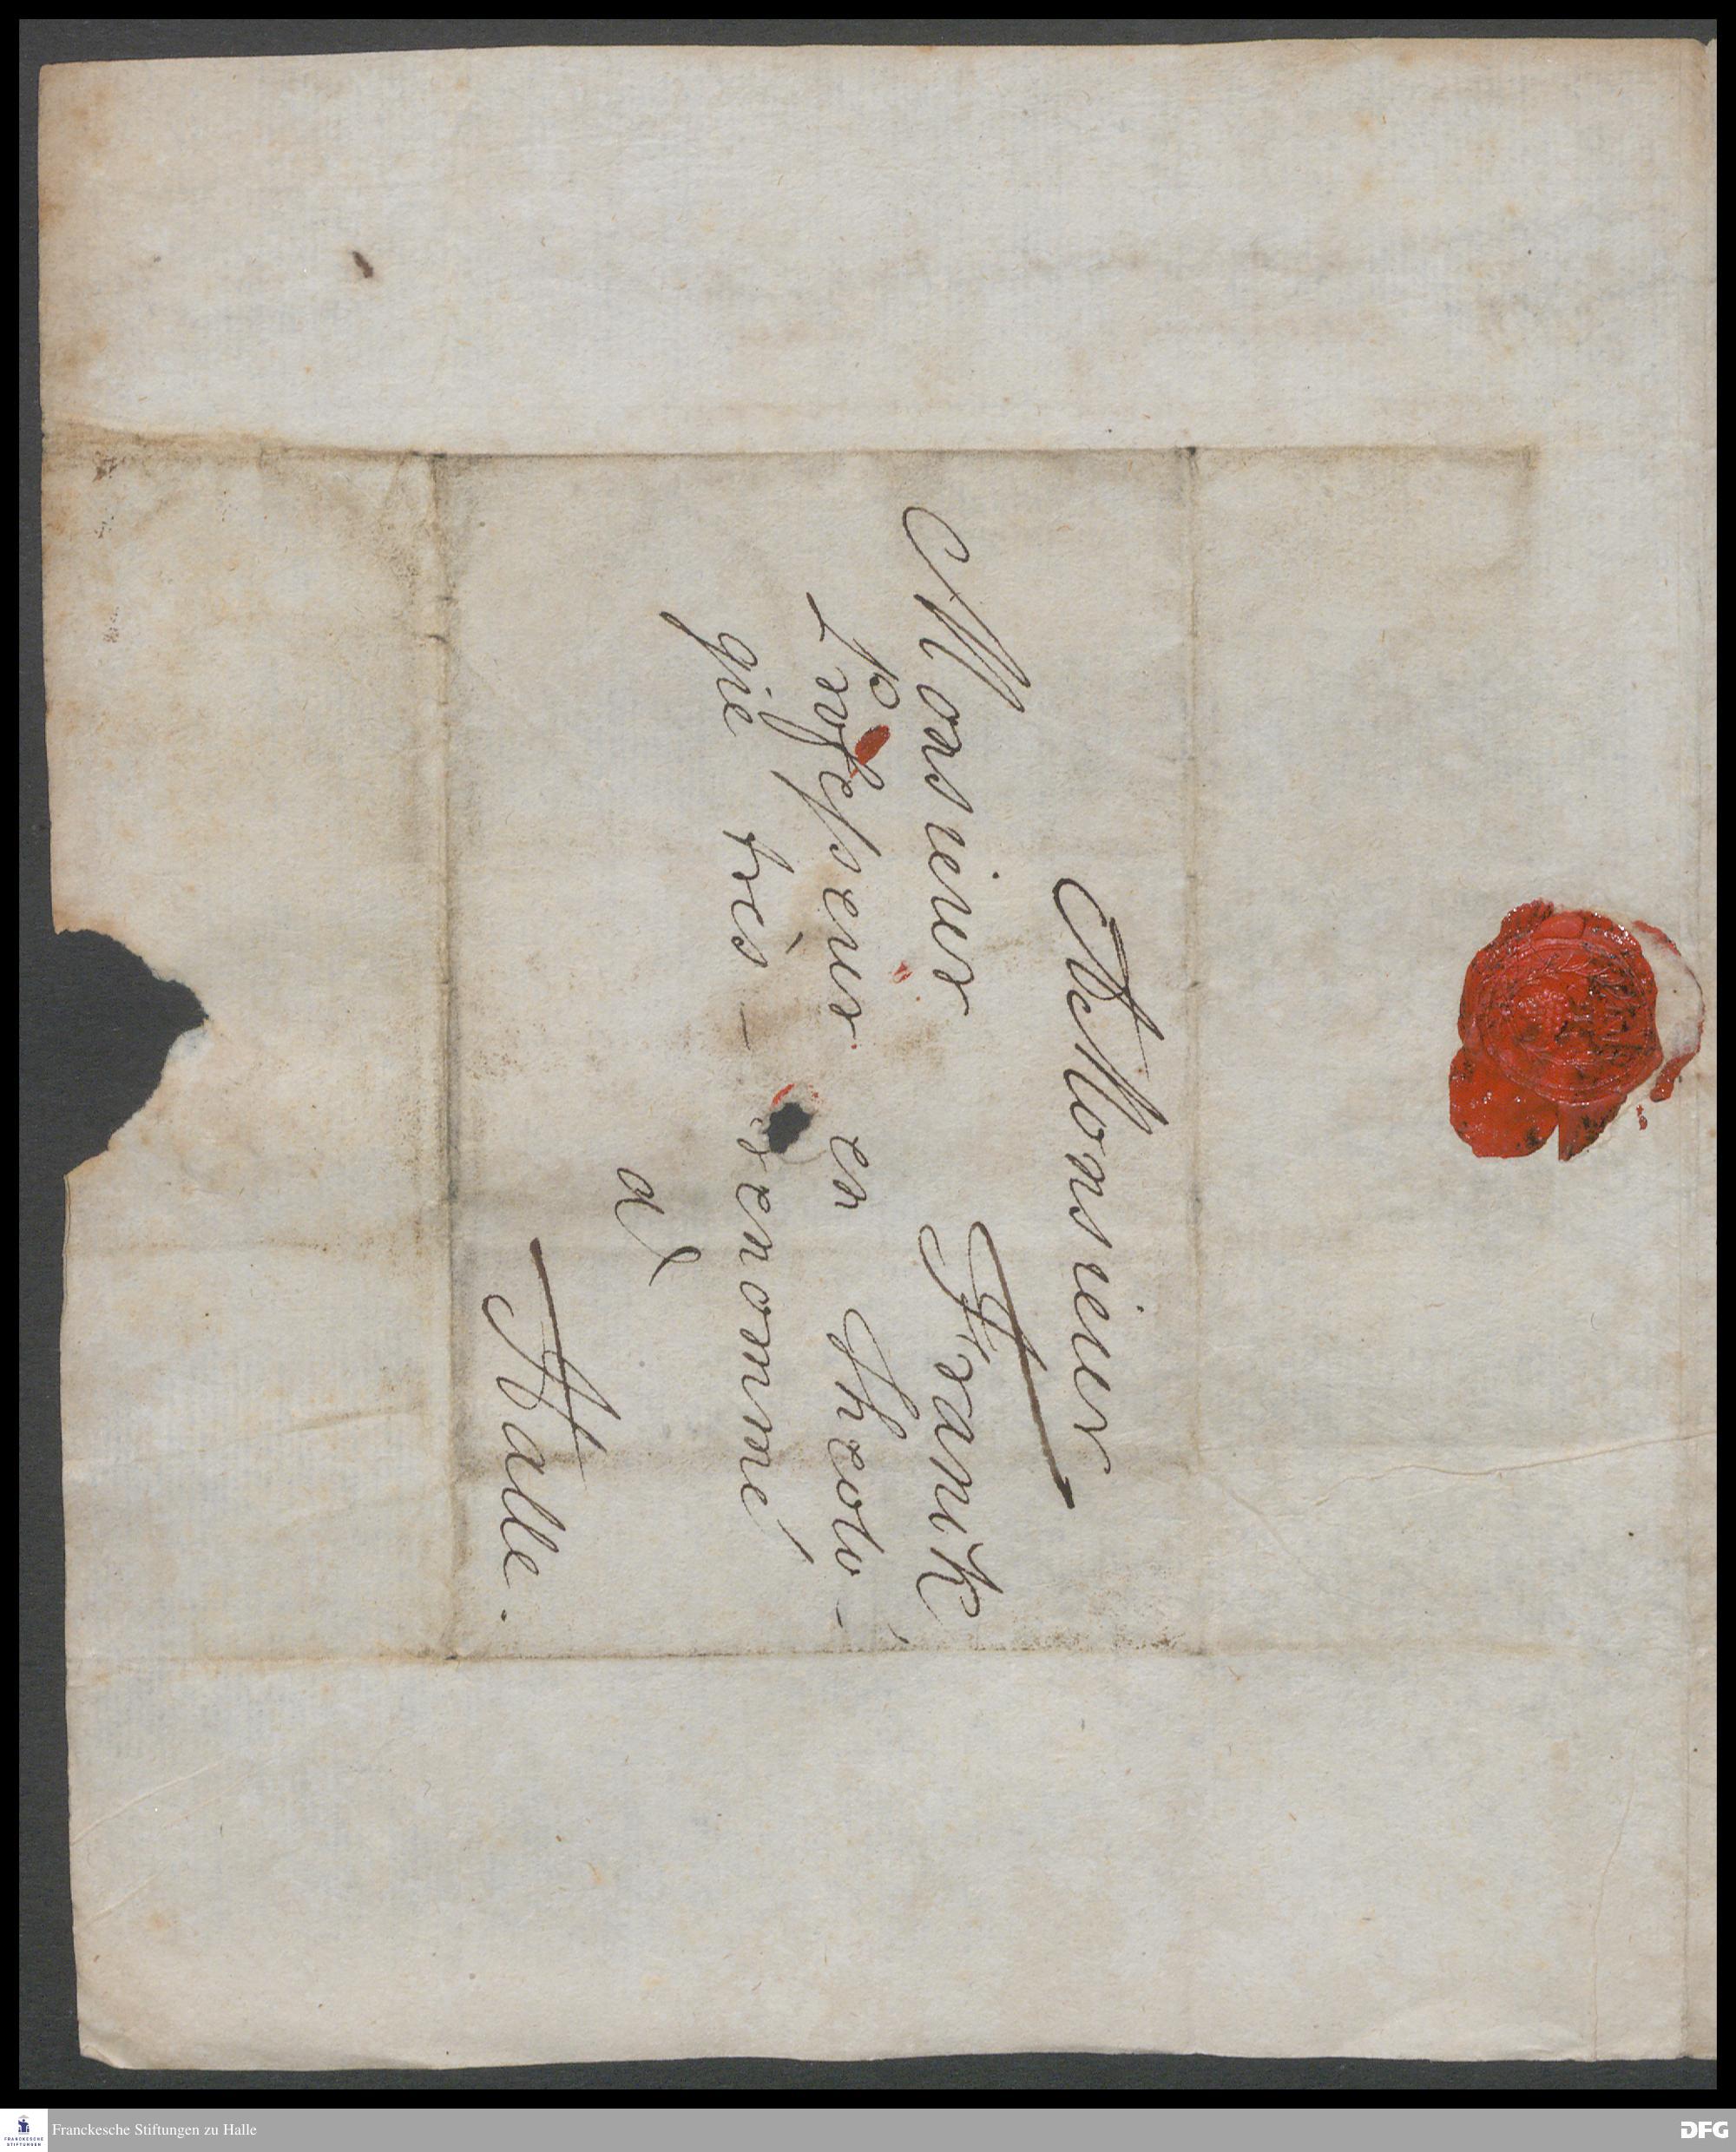 A Monsieur
Monsieur Franck,
Professeur en Theolo-
gie très-renommé
à
Halle.
Franckesche Stiftungen zu Halle
FRANCKESCHE
STIFTUNGEN
DFG